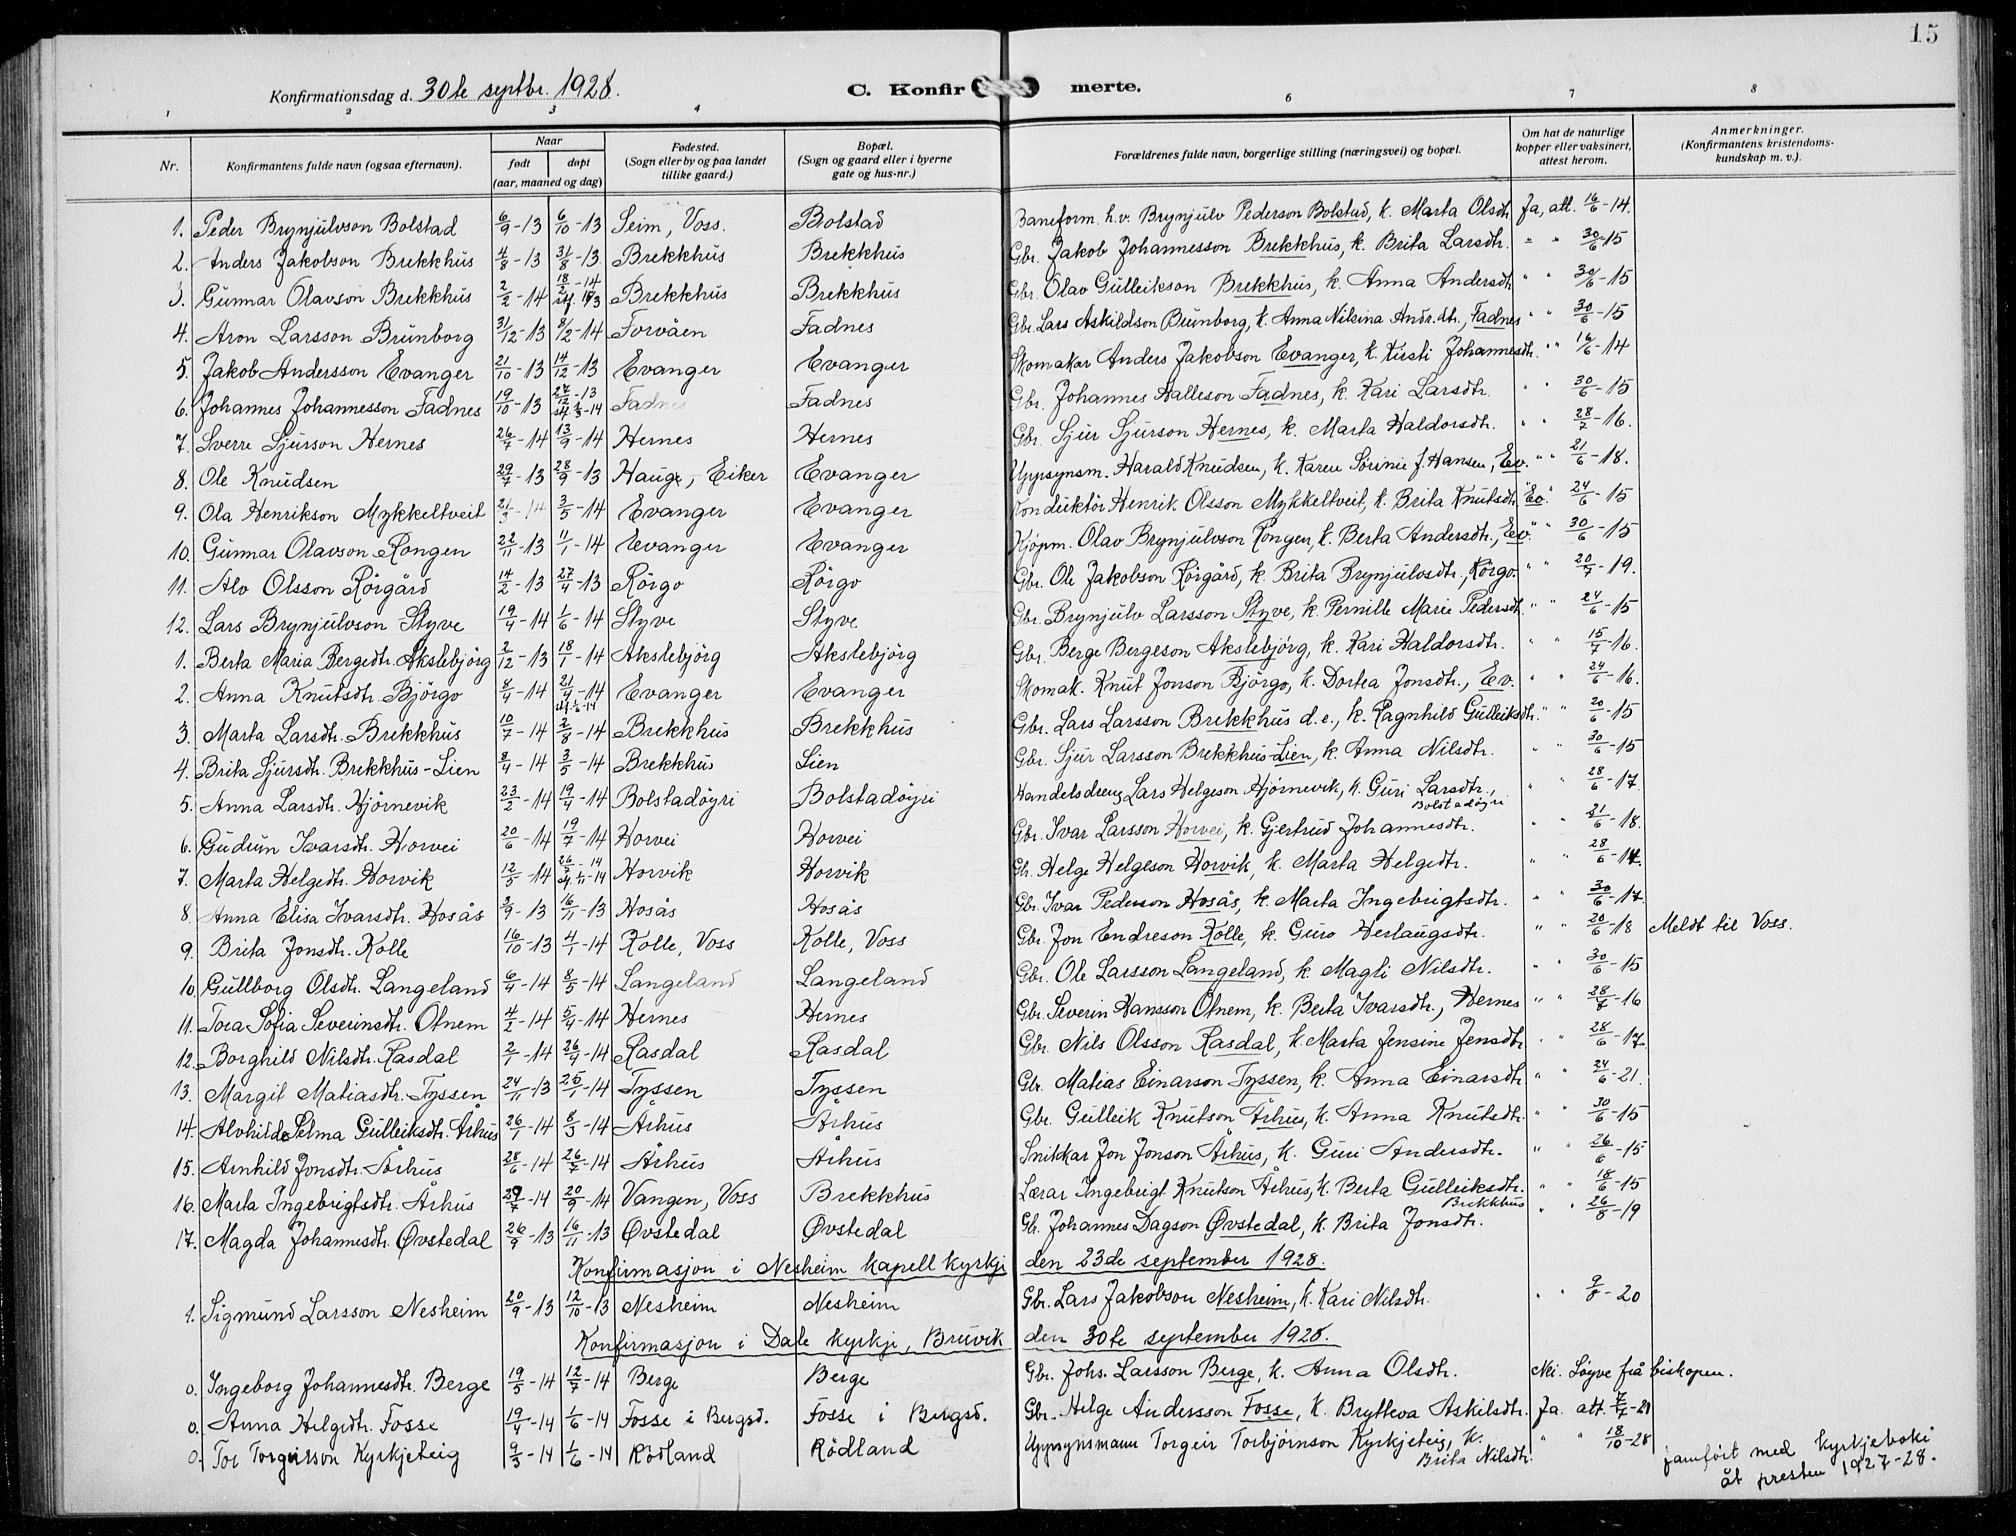 15
Konfirmationsdag d. 30te septbr. 1928.
C. Konfirmerte.
1 2 3 4 6 7 8
Nr. Konfirmantens fulde navn (ogsaa efternavn). Naar født døpt (aar, maaned og dag) Fødested. (Sogn eller by og paa landet tillike gaard.) Bopæl. (Sogn og gaard eller i byerne gate og hus-nr.) Forældrenes fulde navn, borgerlige stilling (næringsvei) og bopæl. Om hat de naturlige kopper eller vaksinert, attest herom. Anmerkninger. (Konfirmantens kristendoms-kundskap m. v.).
1. Peder Brynjulvson Bolstad 6/9-13 6/10-13 Seim, Voss. Bolstad Baneform. h.v. Brynjulv Pederson Bolstad, k. Marta Olsdt. Ja, att. 16/6-14.
2. Anders Jakobson Brekkhus 4/8-13 31/8-13 Brekkhus Brekkhus Gbr. Jakob Johannesson Brekkhus, k. Brita Larsdtr. " " 30/6-15
3. Gunnar Olavson Brekkhus 2/2-14 18/2-14 Brekkhus Brekkhus Gbr. Olav Gulleikson Brekkhus, k. Anna Andersdt. " " 30/6-15
4. Aron Larsson Brunborg 31/12-13 8/2-14 Forvåen Fadnes Gbr. Lars Askildson Brunborg, k. Anna Nilsina Andr.dtr., Fadnes " " 30/6-15
5. Jakob Andersson Evanger 21/10-13 14/12-13 Evanger Evanger Skomakar Anders Jakobson Evanger, k. Kristi Johannesdtr. " " 16/6-14
6. Johannes Johannesson Fadnes 19/10-13 27/12-13 Fadnes Fadnes Gbr. Johannes Halleson Fadnes, k. Kari Larsdtr. " " 30/6-15
7. Sverre Sjurson Hernes 26/7-14 13/9-14 Hernes Hernes Gbr. Sjur Sjurson Hernes, k. Marta Haldorsdtr. " " 28/7-16.
8. Ole Knudsen 29/7-13 28/9-13 Hauge, Eiker Evanger Uppsynsm. Harald Knudsen, k. Karen Sørinie f. Hansen, Ev. " " 21/6-18.
9. Ola Henrikson Mykkeltveit 21/3-14 3/5-14 Evanger Evanger Konduktör Henrik Olsson Mykkeltveit, k. Brita Knutsdtr. Ev. " " 24/6-15
10. Gunnar Olavson Rongen 22/11-13 11/1-14 Evanger Evanger Kjöpm. Olav Brynjulvson Rongen, k. Berta Andersdtr., Ev. " " 30/6-15
11. Alv Olsson Rörgård 14/2-13 27/4-13 Rörgo Rörgo Gbr. Ole Jakobson Rörgård, k. Brita Brynjulvsdtr., Rörgo. " " 20/7-19.
12. Lars Brynjulvson Styve 19/4-14 1/6-14 Styve Styve Gbr. Brynjulv Larsson Styve, k. Pernille Marie Pedersdt. " " 24/6-15
1. Berta Maria Bergedtr. Akslebjörg 2/12-13 18/1-14 Akslebjörg Akslebjörg Gbr. Berge Bergeson Akslebjörg, k. Kari Haldorsdtr. " " 15/7-16.
2. Anna Knutsdtr. Björgo 8/4-14 21/4-14 Evanger Evanger Skomak. Knut Jonson Björgo, k. Dortea Jonsdtr., Ev. " " 24/6-16.
3. Marta Larsdtr. Brekkhus 10/7-14 2/8-14 Brekkhus Brekkhus Gbr. Lars Larsson Brekkhus d.e., k. Ragnhild Gulleiksdtr. " " 20/6-15
4. Brita Sjursdtr. Brekkhus-Lien 8/4-14 3/5-14 Brekkhus Lien Gbr. Sjur Larsson Brekkhus-Lien, k. Anna Nilsdtr. " " 30/6-15
5. Anna Larsdtr. Hjörnevik 23/2-14 19/4-14 Bolstadöyri Bolstadöyri Handelsdreng Lars Helgeson Hjörnevik, k. Guri Larsdtr., Bolstadöyri " " 28/6-17.
6. Gudrun Ivarsdtr. Horvei 20/6-14 19/7-14 Horvei Horvei Gbr. Ivar Larsson Horvei, k. Gjertrud Johannesdtr. " " 21/6-18.
7. Marta Helgedtr. Horvik 12/5-14 Horvik Horvik Gbr. Helge Helgeson Horvik, k. Marta Helgedtr. " " 28/6-17.
8. Anna Elisa Ivarsdtr. Hosås 3/9-13 16/11-13 Hosås Hosås Gbr. Ivar Pederson Hosås, k. Marta Ingebrigtsdtr. " " 30/6-17.
9. Brita Jonsdtr. Kolle 16/10-13 4/1-14 Kolle, Voss Kolle, Voss Gbr. Jon Endreson Kolle, k. Guro Herlaugsdtr. " " 20/6-18 Meldt til Voss.
10. Gullborg Olsdtr. Langeland 6/4-14 8/5-14 Langeland Langeland Gbr. Ole Larsson Langeland, k. Magli Nilsdtr. " " 30/6-15
11. Tora Sofia Severinsdtr. Otnem 4/2-14 5/4-14 Hernes Hernes Gbr. Severin Hansson Otnem, k. Berta Ivarsdtr., Hernes " " 28/7-16
12. Borghild Nilsdtr. Rasdal 2/1-14 26/4-14 Rasdal Rasdal Gbr. Nils Olsson Rasdal, k. Marta Jensine Jensdtr. " " 28/6-17.
13. Margit Matiasdtr. Tyssen 24/11-13 25/1-14 Tyssen Tyssen Gbr. Matias Einarson Tyssen, k. Anna Einarsdtr. " " 24/6-21.
14. Alvhilde Selma Gulleiksdtr. Århus 26/1-14 8/3-14 Århus Århus Gbr. Gulleik Knutson Århus, k. Anna Knutsdtr. " " 30/6-15
15. Arnhild Jonsdtr. Århus 28/6-14 26/7-14 Århus Århus Snikkar Jon Jonson Århus, k. Guri Andersdtr. " " 26/6-15
16. Marta Ingebrigtsdtr. Århus 29/7-14 20/9-14 Vangen, Voss Brekkhus Lærar Ingebrigt Knutson Århus, k. Berta Gulleiksdtr. Brekkhus " " 18/6-15
17. Magda Johannesdtr. Øvstedal 26/9-13 16/11-13 Øvstedal Øvstedal Gb. Johannes Dagson Øvstedal, k. Brita Jonsdtr. " " 26/8-19
Konfirmasjon i Nesheim kapellkyrkje den 23de september 1928.
1. Sigmund Larsson Nesheim 20/9-13 12/10-13 Nesheim Nesheim Gbr. Lars Jakobson Nesheim, k. Kari Nilsdtr. " " 9/8-20
Konfirmasjon i Dale kyrkje, Bruvik den 30te september 1928.
0. Ingeborg Johannesdtr. Berge 19/5-14 12/7-14 Berge Berge Gbr. Johs. Larsson Berge, k. Anna Olsdtr. Nei. Löyve frå biskopen.
0. Anna Helgedtr. Fosse 19/4-14 1/6-14 Fosse i Bergsd. Fosse i Bergsd. Gbr. Helge Andersson Fosse, k. Brytteva Askilsdtr. Ja. att. 7/7-21
0. Tor Torgeirson Kyrkjeteig 9/3-14 1/6-14 Rödland Rödland Uppsynsmann Torgeir Torbjørnson Kyrkjeteig, k. Brita Nilsdtr. " " 18/10-28
jamfört med kyrkjeboki
åt presten 1927-28.